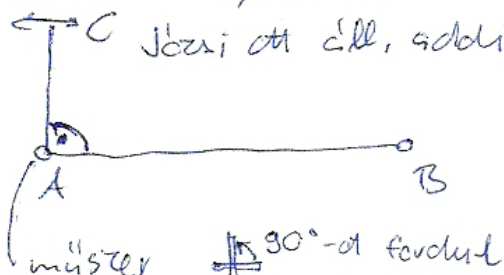 C Józsi ott áll, addh
A
B
műszer 90°-ot fordul